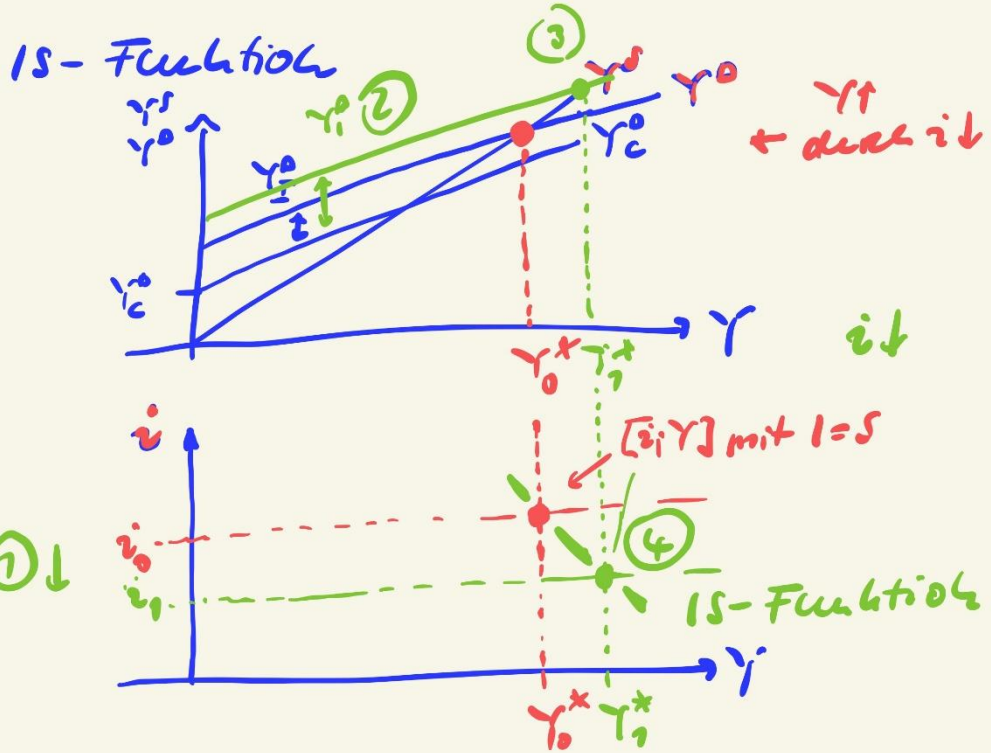 IS-Funktion
③
Yˢ
Yᴰ
Y₁ᴰ ②
Yˢ
Yᴰ
Y_Cᴰ
Y↑
← durch i↓
Y_Iᴰ
Y_Cᴰ
Y
i↓
Y₀* Y₁*
i
[i, Y] mit I=S
i₀
① ↓
i₁
④
IS-Funktion
Y
Y₀* Y₁*